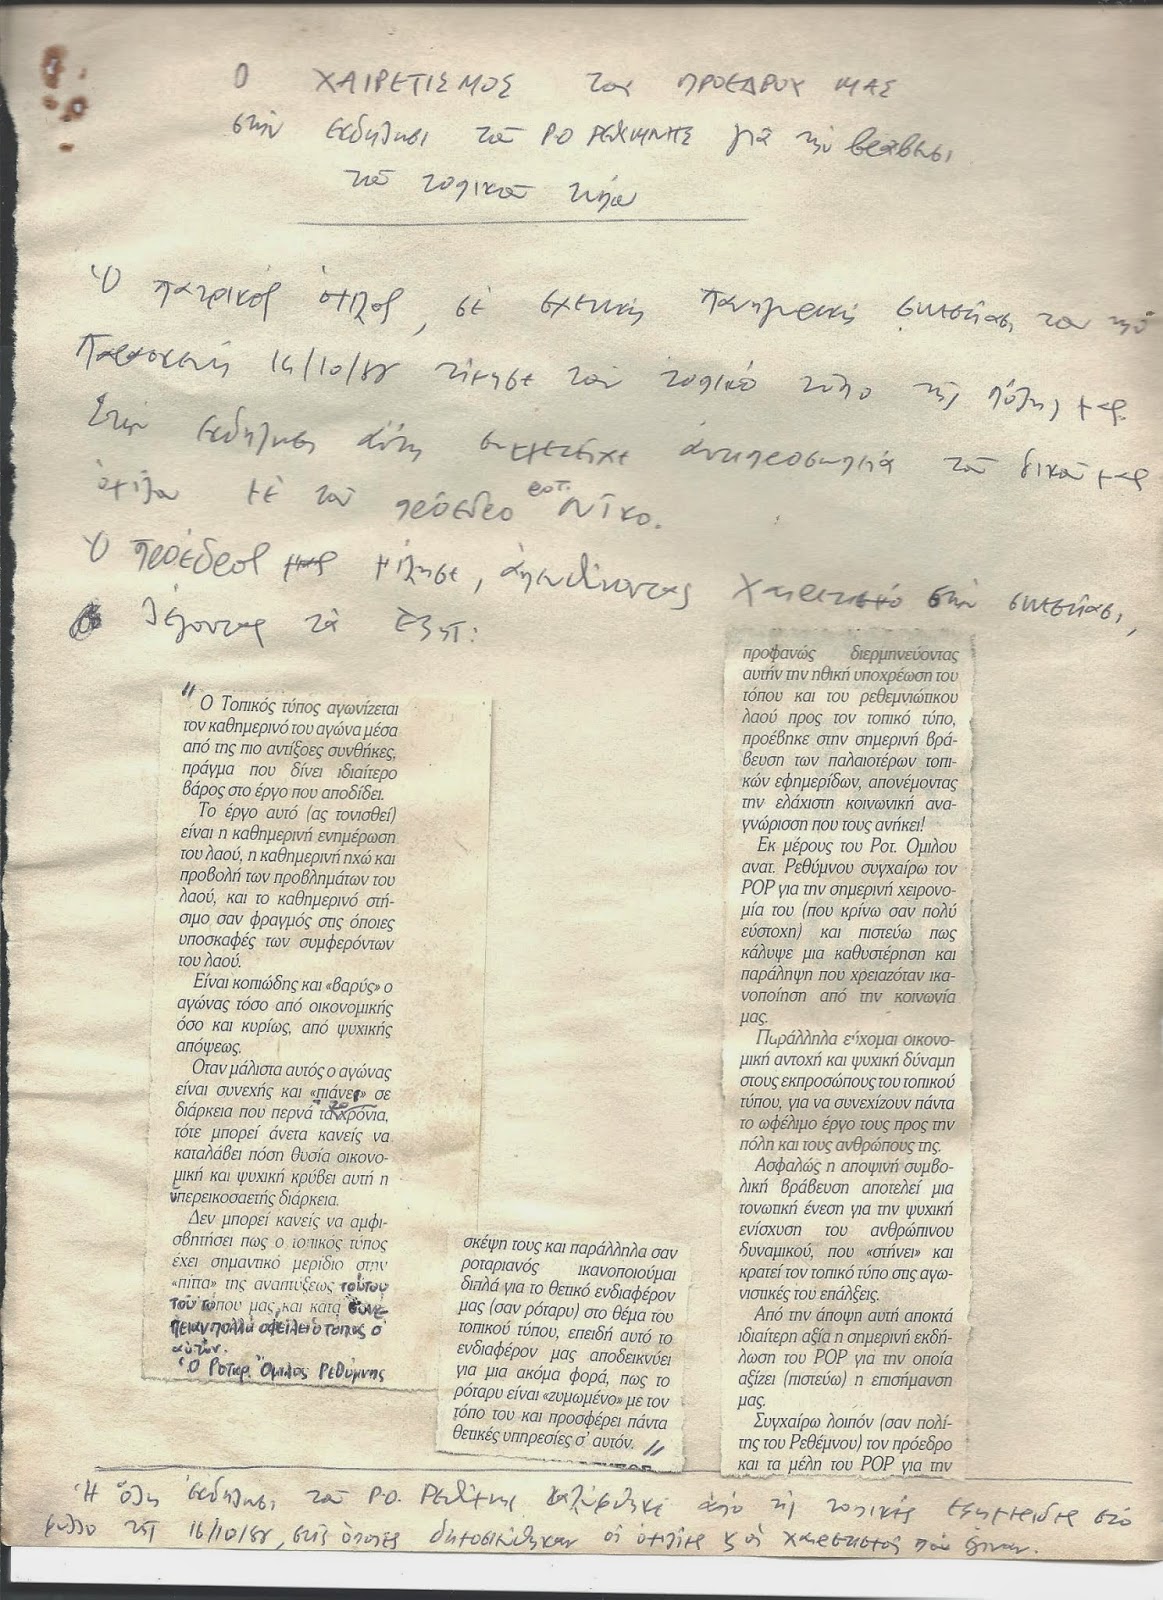 Ο ΧΑΙΡΕΤΙΣΜΟΣ του ΠΡΟΕΔΡΟΥ ΜΑΣ
στην εκδήλωσι τοῦ Ρ.Ο ΡΕΘΥΜΝΗΣ γιά τήν βράβευσι
τοῦ τοπικοῦ τύπου
Ὁ πατρικός ὅμιλος, σέ σχετική πανηγυρική συνεστίασι του τήν
Παρασκευή 14/10/88 τίμησε τον τοπικό τύπο τῆς πόλης μας.
Στήν εκδήλωση αὐτή συμμετεῖχε ἀντιπροσωπεία τοῦ δικοῦ μας
ὁμίλου μέ τον πρόεδρο ροτ. Νῖκο.
Ὁ Πρόεδρος μας μίλησε, ἀπευθύνοντας χαιρετισμό στήν συνεστίασι,
λέγοντας τά ἑξῆς:
"Ο Τοπικός τύπος αγωνίζεται
τον καθημερινό του αγώνα μέσα
από της πιο αντίξοες συνθήκες,
πράγμα που δίνει ιδιαίτερο
βάρος στο έργο που αποδίδει.
Το έργο αυτό (ας τονισθεί)
είναι η καθημερινή ενημέρωση
του λαού, η καθημερινή ηχώ και
προβολή των προβλημάτων του
λαού, και το καθημερινό στή-
σιμο σαν φραγμός στις όποιες
υποσκαφές των συμφερόντων
του λαού.
Είναι κοπιώδης και «βαρύς» ο
αγώνας τόσο από οικονομικής
όσο και κυρίως, από ψυχικής
απόψεως.
Οταν μάλιστα αυτός ο αγώνας
είναι συνεχής και «πιάνει» σε
διάρκεια που περνά τα 20 χρόνια,
τότε μπορεί άνετα κανείς να
καταλάβει πόση θυσία οικονο-
μική και ψυχική κρύβει αυτή η
υπερεικοσαετής διάρκεια.
Δεν μπορεί κανείς να αμφι-
σβητήσει πως ο τοπικός τύπος
έχει σημαντικό μερίδιο στην
«πίττα» της αναπτύξεως τούτου
τοῦ τόπου μας, και κατά συνέ-
πειαν πολλά οφείλει ο τόπος σ'
αὐτόν.
Ὁ Ροταρ. Ὅμιλος Ρεθύμνης
προφανώς διερμηνεύοντας
αυτήν την ηθική υποχρέωση του
τόπου και του ρεθεμνιώτικου
λαού προς τον τοπικό τύπο,
προέβηκε στην σημερινή βρά-
βευση των παλαιοτέρων τοπι-
κών εφημερίδων, απονέμοντας
την ελάχιστη κοινωνική ανα-
γνώρισση που τους ανήκει!
Εκ μέρους του Ροτ. Ομιλου
ανατ. Ρεθύμνου συγχαίρω τον
ΡΟΡ για την σημερινή χειρονο-
μία του (που κρίνω σαν πολύ
εύστοχη) και πιστεύω πως
κάλυψε μια καθυστέρηση και
παράληψη που χρειαζόταν ικα-
νοποίηση από την κοινωνία
μας.
Παράλληλα εύχομαι οικονο-
μική αντοχή και ψυχική δύναμη
στους εκπροσώπους του τοπικού
τύπου, για να συνεχίζουν πάντα
το ωφέλιμο έργο τους προς την
πόλη και τους ανθρώπους της.
Ασφαλώς η αποψινή συμβο-
λική βράβευση αποτελεί μια
τονωτική ένεση για την ψυχική
ενίσχυση του ανθρώπινου
δυναμικού, που «στήνει» και
κρατεί τον τοπικό τύπο στις αγω-
νιστικές του επάλξεις.
Από την άποψη αυτή αποκτά
ιδιαίτερη αξία η σημερινή εκδή-
λωση του ΡΟΡ για την οποία
αξίζει (πιστεύω) η επισήμανση
μας.
Συγχαίρω λοιπόν (σαν πολί-
της του Ρεθέμνου) τον πρόεδρο
και τα μέλη του ΡΟΡ για την
σκέψη τους και παράλληλα σαν
ροταριανός ικανοποιούμαι
διπλά για το θετικό ενδιαφέρον
μας (σαν ρόταρυ) στο θέμα του
τοπικού τύπου, επειδή αυτό το
ενδιαφέρον μας αποδεικνύει
για μια ακόμα φορά, πως το
ρόταρυ είναι «ζυμωμένο» με τον
τόπο του και προσφέρει πάντα
θετικές υπηρεσίες σ' αυτόν. "
Ἡ ὅλη ἐκδήλωσι τοῦ Ρ.Ο. Ρεθύμνης καλύφθηκε ἀπό τίς τοπικές εφημερίδες στό
φύλλο τῆς 16/10/88, στίς ὁποῖες δημοσιεύθηκαν οἱ ὁμιλίες & οἱ χαιρετισμοί πού ἔγιναν.